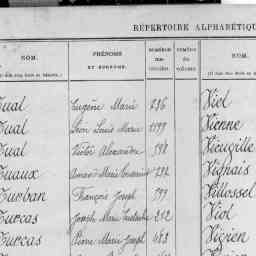 RÉPERTOIRE ALPHABÉTIQU
NOM. PRÉNOMS ET SURNOMS. NUMÉROS NOM.
Tual Eugène Marie 236 Viel
Tual Léon Louis Marie 1199 Vienne
Tual Victor Alexandre Vieuville
Tuaux Marie Vignais
Turban François Joseph 799 Villossel
Turcas Joseph Marie 212 Viol
Turcas Pierre Marie Joseph 483 Vizien